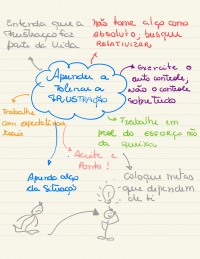 Entenda que a
frustração faz
parte da vida
não tome algo como
absoluto, busque
RELATIVIZAR
Aprender a
Tolerar a
FRUSTRAÇÃO
Exercite o
auto controle,
não o controle
sobre tudo
Trabalhe
com expectativas
reais
Trabalhe em
prol do esforço não
da queixa
Aceite e
Ponto!
Aprenda algo
da situação
Coloque metas
que dependem
de ti